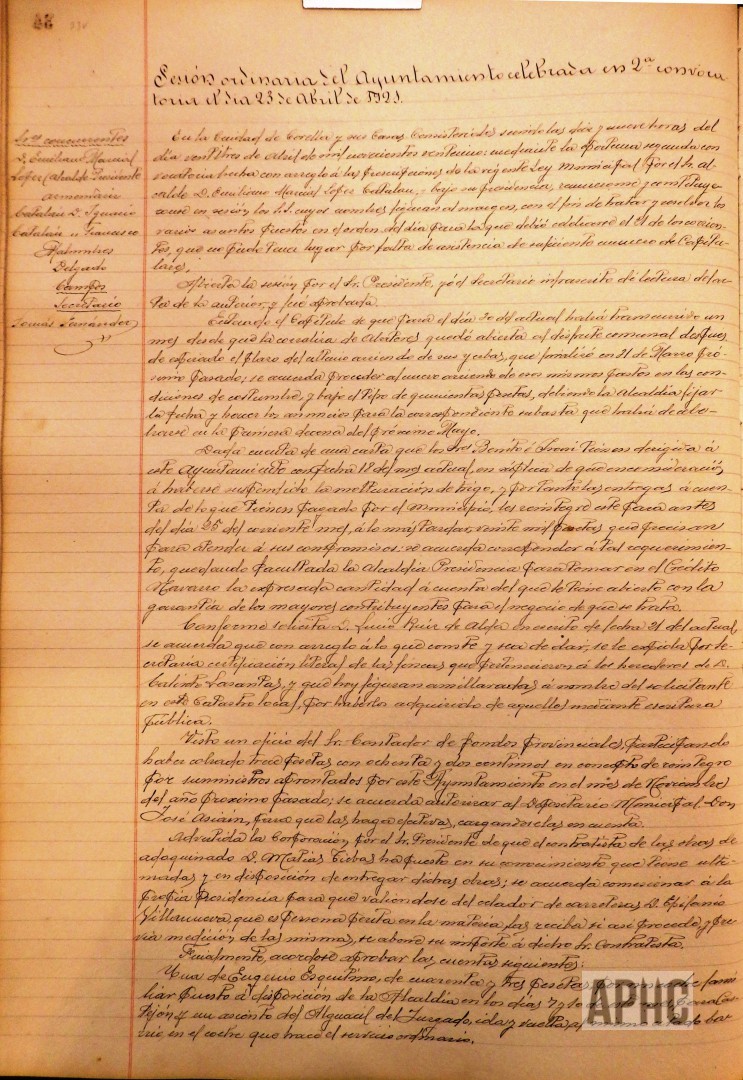 Sesión ordinaria del Ayuntamiento celebrada en 2ª convoca
toria el dia 23 de Abril de 1921.
Sres concurrentes
D. Emiliano Marcial
López (Alcalde Presidente
Armendáriz
Catalán D. Ignacio
Catalán D. Francisco
Delgado
Campos
Secretario
Tomás Fernández
En la Ciudad de Corella y sus Casas Consistoriales siendo las diez y nueve horas del
día veintitres de Abril de mil novecientos veintiuno: mediante la oportuna segunda con
vocatoria hecha con arreglo á las prescripciones de la vigente Ley Municipal por el Sr. Al
calde D. Emiliano Marcial López Catalán, y bajo su presidencia, reuniéronse y constituye
ronse en sesión los S.S. cuyos nombres figuran al margen, con el fin de tratar y resolver los
varios asuntos puestos en el orden del día para la que debió celebrarse el 21 de los corrien
tes, que no pudo tener lugar por falta de asistencia de suficiente número de Capitu
lares.
Abierta la sesión por el Sr. Presidente, yó el Secretario infrascrito dí lectura del ac
ta de la anterior, y fué aprobada.
Enterado el Capítulo de que para el día 30 del actual habrá transcurrido un
mes desde que la corraliza de Abatores quedó abierta al disfrute comunal despues
de espirado el plazo del último arriendo de sus yerbas, que finalizó en 31 de Marzo pró
ximo pasado; se acuerda proceder al nuevo arriendo de esos mismos pastos en las con
diciones de costumbre, y bajo el tipo de quinientas pesetas, debiendo la Alcaldía fijar
la fecha y hacer los anuncios para la correspondiente subasta que habrá de cele
brarse en la primera decena del próximo Mayo.
Dada cuenta de una carta que los Sres Benito é dirigen á
este Ayuntamiento con fecha 18 del mes actual, en súplica de que en consideración
á haberse suspendido la molturación de trigo, y por tanto las entregas á cuen
ta de lo que tienen pagado por el Municipio, les reintegre este para antes
del día 25 del corriente mes, á lo más tardar, veinte mil pesetas que precisan
para atender á sus compromisos: se acuerda corresponder á tal requerimien
to, quedando facultada la Alcaldía Presidencia para tomar en el Crédito
Navarro la expresada cantidad á cuenta del que le tiene abierto con la
garantía de los mayores contribuyentes para el negocio de que se trata.
Conforme solicita D. Lucio Ruiz de Alda en escrito de fecha 21 del actual,
se acuerda que con arreglo á lo que conste y sea de dar, se le expida por Se
cretaría certificación literal de las fincas que pertenecieron á los herederos de D.
Celedonio Lasantas, y que hoy figuran amillaradas á nombre del solicitante
en este Catastro local, por haberlas adquirido de aquellos mediante escritura
pública.
Visto un oficio del Sr. Contador de Fondos Provinciales, participando
haber cobrado trece pesetas con ochenta y dos céntimos en concepto de reintegro
por suministros aprontados por este Ayuntamiento en el mes de Noviembre
del año próximo pasado; se acuerda autorizar al Depositario Municipal Don
José Asiain, para que las haga efectivas, cargandoselas en cuenta.
Advertida la Corporación por el Sr. Presidente de que el contratista de las obras de
adoquinado D. Matías Tiebas ha puesto en su conocimiento que tiene ulti
madas y en disposición de entregar dichas obras; se acuerda comisionar á la
propia Presidencia para que valiéndose del celador de carreteras D. Epifanio
Villanueva, que es persona perita en la materia, las reciba si así procede, y pre
via medición de las mismas, se abone su importe á dicho Sr. Contratista.
Finalmente acordóse aprobar las cuentas siguientes:
Una de Eugenio Esquitino, de cuarenta y tres pesetas, por un coche fami
liar puesto á disposición de la Alcaldía en los días 7 y 10 de para Cas
tejón y un asiento del Alguacil del Juzgado, ida y vuelta al
en el coche que hace el servicio ordinario.
APHC